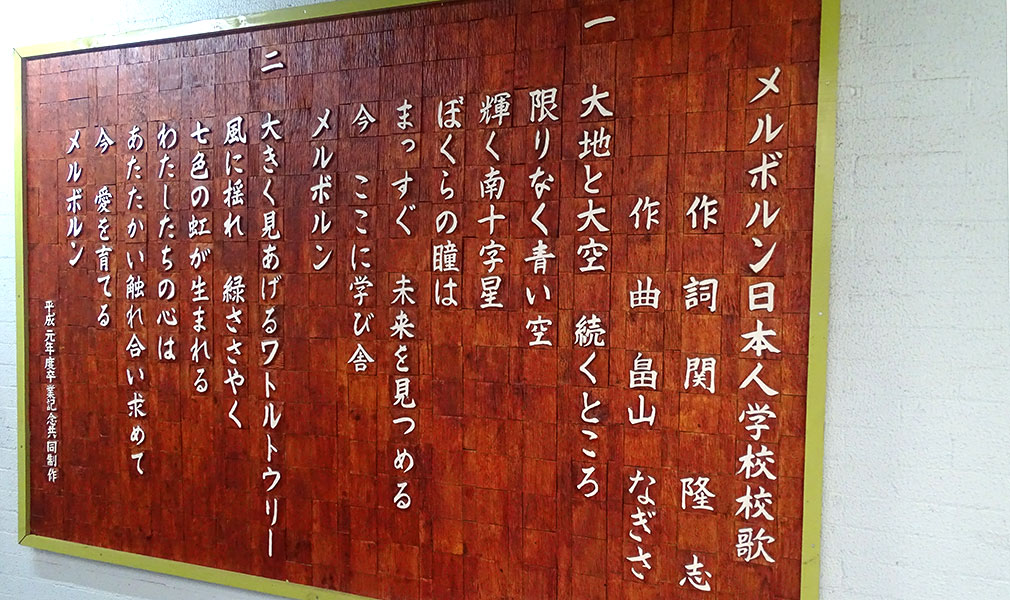 メルボルン日本人学校校歌
作詞 関 隆志
作曲 畠山 なぎさ
一 大地と大空 続くところ
限りなく青い空
輝く南十字星
ぼくらの瞳は
まっすぐ 未来を見つめる
今 ここに学び舎
メルボルン
二 大きく見あげるワトルトウリー
風に揺れ 緑ささやく
七色の虹が生まれる
わたしたちの心は
あたたかい触れ合い求めて
今 愛を育てる
メルボルン
平成元年度卒業記念共同制作